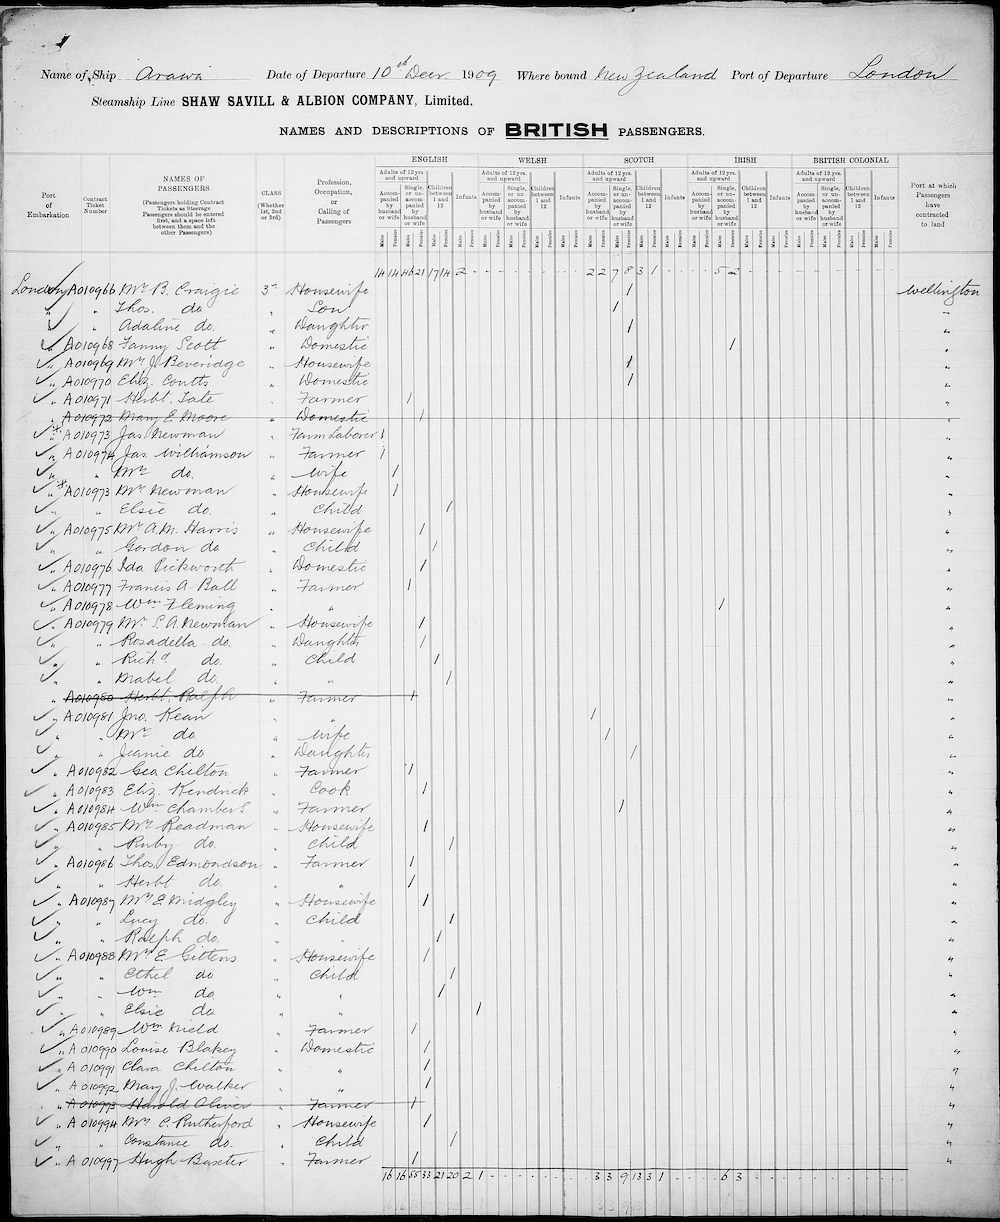 Name of Ship Arawa Date of Departure 10th Decr 1909 Where bound New Zealand Port of Departure London
Steamship Line SHAW SAVILL & ALBION COMPANY, Limited.
NAMES AND DESCRIPTIONS OF BRITISH PASSENGERS.
ENGLISH WELSH SCOTCH IRISH BRITISH COLONIAL
Port of Embarkation
Contract Ticket Number
NAMES OF PASSENGERS
(Passengers holding Contract Tickets as Steerage Passengers should be entered first, and a space left between them and the other Passengers)
CLASS (Whether 1st, 2nd or 3rd)
Profession, Occupation, or Calling of Passengers
Adults of 12 yrs. and upward
Accompanied by husband or wife
Single, or unaccompanied by husband or wife
Children between 1 and 12
Infants
Males Females
Port at which Passengers have contracted to land
14 14 46 21 17 14 2 - 2 2 7 8 3 1 - 5 2
London A010966 Mrs B. Craigie 3rd Housewife 1 Wellington
" " Thos. do " Son 1 "
" " Adaline do. " Daughter 1 "
" A010968 Fanny Scott " Domestic 1 "
" A010969 Mrs J. Beveridge " Housewife 1 "
" A010970 Eliz. Coutts " Domestic 1 "
" A010971 Herbt. Tate " Farmer 1 "
" A010972 Mary E. Moore " Domestic 1 "
" A010973 Jas. Newman " Farm Laborer 1 "
" A010974 Jas. Williamson " Farmer 1 "
" " Mrs do. " Wife 1 "
" A010973 Mrs Newman " Housewife 1 "
" " Elsie do. " Child 1 "
" A010975 Mrs A.M. Harris " Housewife 1 "
" " Gordon do " Child 1 "
" A010976 Ida Pickworth " Domestic 1 "
" A010977 Francis A. Ball " Farmer 1 "
" A010978 Wm Fleming " " 1 "
" A010979 Mrs S.A. Newman " Housewife 1 "
" " Rosadella do. " Daughter 1 "
" " Richd do. " Child 1 "
" " Mabel do. " " 1 "
" A010980 Herbt. Ralph " Farmer 1
" A010981 Jno. Kean " " 1 "
" " Mrs do " Wife 1 "
" " Jeanie do " Daughter 1 "
" A010982 Geo Chilton " Farmer 1 "
" A010983 Eliz. Kendrick " Cook 1 "
" A010984 Wm Chambers " Farmer 1 "
" A010985 Mrs Readman " Housewife 1 "
" " Ruby do. " Child 1 "
" A010986 Thos. Edmondson " Farmer 1 "
" " Herbt do. " " 1 "
" A010987 Mrs E. Midgley " Housewife 1 "
" " Lucy do. " Child 1 "
" " Ralph do. " " 1 "
" A010988 Mrs E. Gittens " Housewife 1 "
" " Ethel do " Child 1 "
" " Wm do. " " 1 "
" " Elsie do " " 1 "
" A010989 Wm Nield " Farmer 1 "
" A010990 Louise Blakey " Domestic 1 "
" A010991 Clara Chilton " " 1 "
" A010992 Mary J. Walker " " 1 "
" A010993 Harold Oliver " Farmer 1 "
" A010994 Mrs C. Rutherford " Housewife 1 "
" " Constance do. " Child 1 "
" A010997 Hugh Baxter " Farmer 1 "
16 16 55 33 21 20 2 1 - 3 3 9 13 3 1 - 6 3